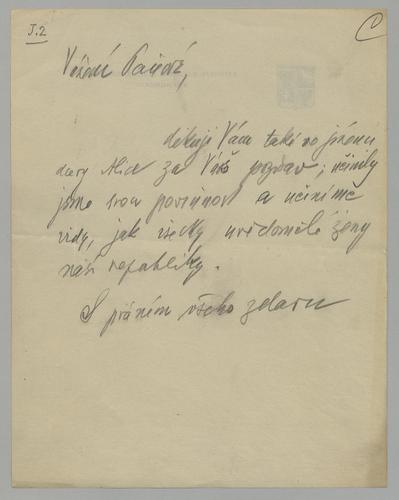 I.2
C
Vážení Pánové,
děkuji Vám také ve jménu
dcery Alice za Váš pozdrav; učinily
jsme svou povinnost a učiníme
vždy, jak všecky uvědomělé ženy
naší republiky.
S přáním všeho zdaru